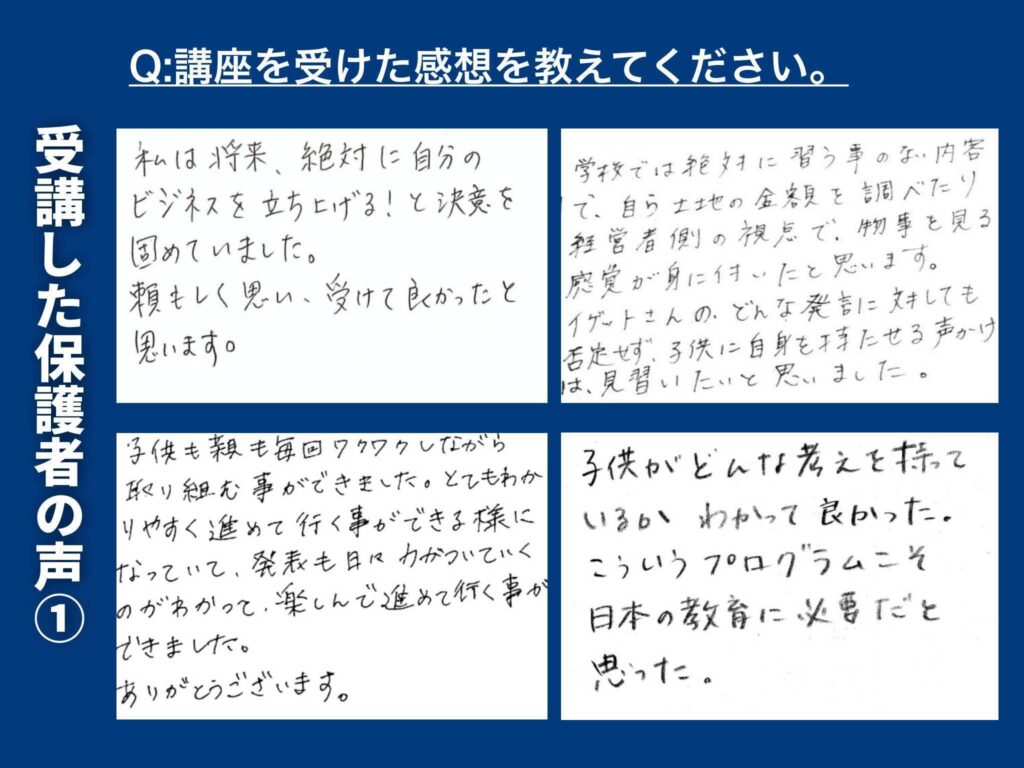 Q:講座を受けた感想を教えてください。
受講した保護者の声①
私は将来、絶対に自分の
ビジネスを立ち上げる!と決意を
固めていました。
頼もしく思い、受けて良かったと
思います。
学校では絶対に習う事のない内容
で、自ら土地の金額を調べたり
経営者側の視点で、物事を見る
感覚が身に付いたと思います。
イゲットさんの、どんな発言に対しても
否定せず、子供に自身を持たせる声かけ
は、見習いたいと思いました。
子供も親も毎回ワクワクしながら
取り組む事ができました。とてもわか
りやすく進めて行く事ができる様に
なっていて、発表も日々力がついていく
のがわかって、楽しんで進めて行く事が
できました。
ありがとうございます。
子供がどんな考えを持って
いるか わかって良かった。
こういうプログラムこそ
日本の教育に必要だと
思った。